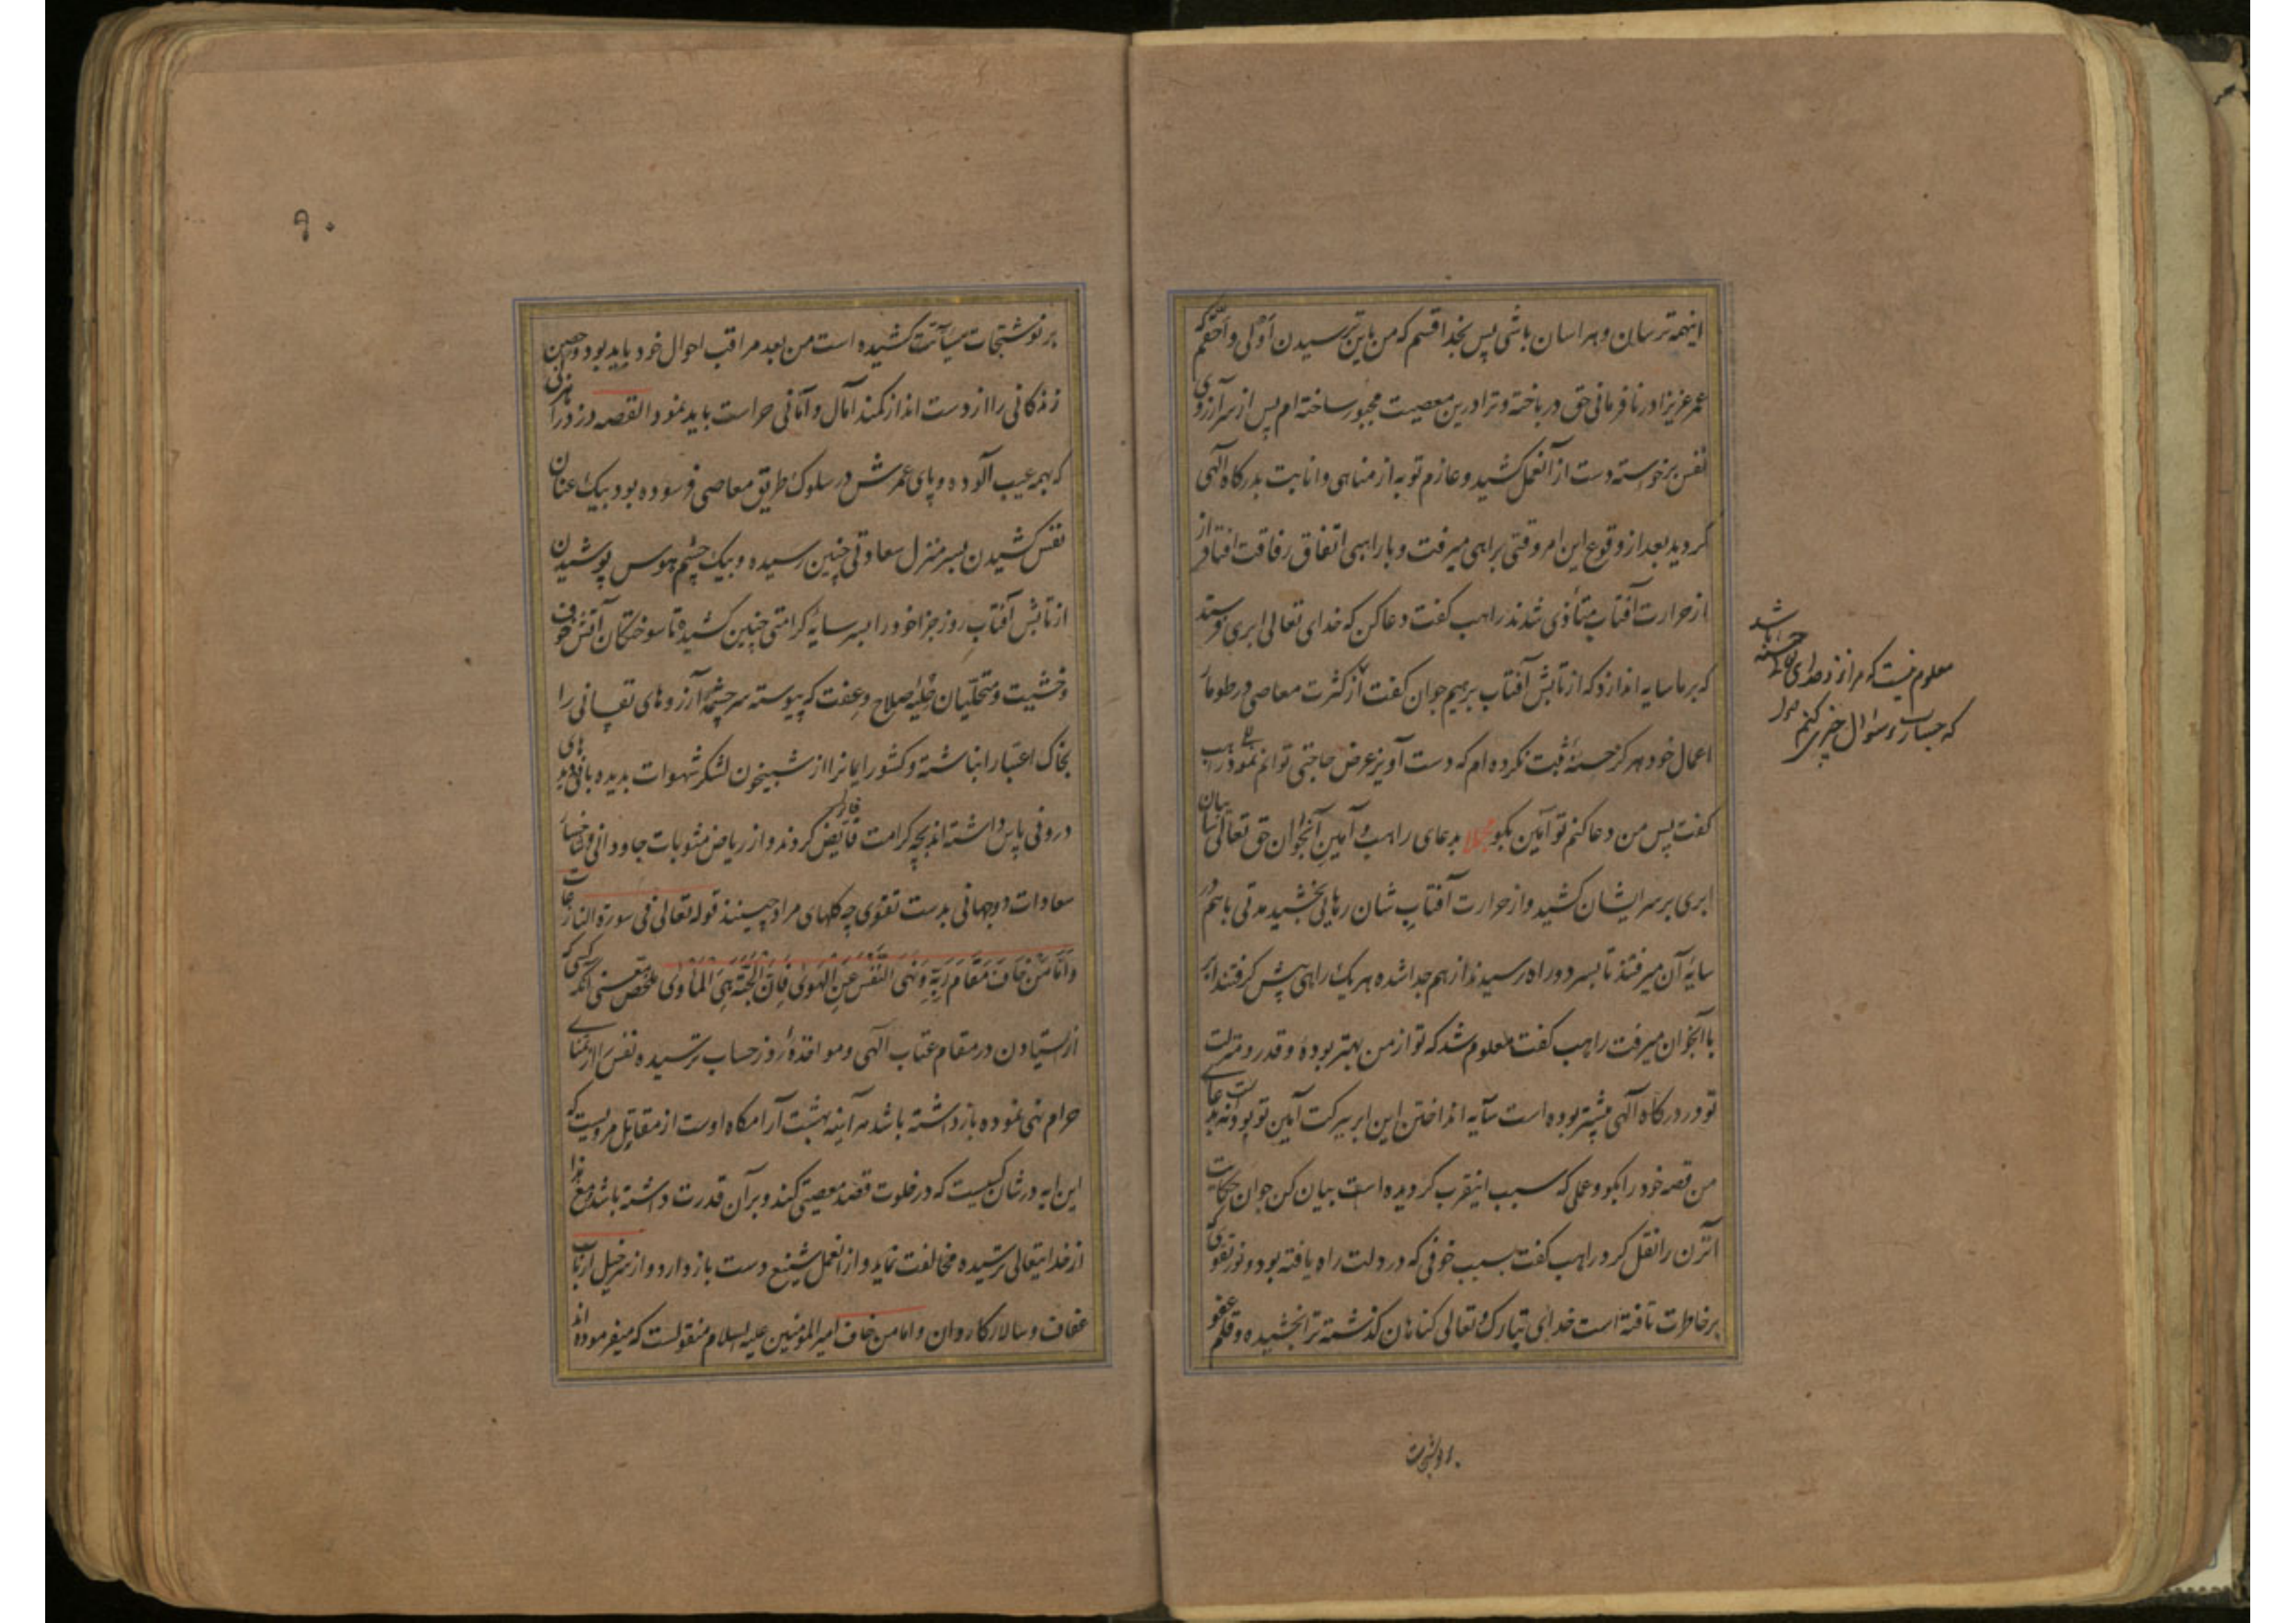 اینهمه ترسان و هراسان باشی پس بخدا قسم که من باین ترسیدن اولی و احقم که
عمر عزیز را در نافرمانی حق در باخته و ترا درین معصیت مجبور ساخته ام پس از سر آرزوی
نفس برخواسته دست از آنعمل کشید و عازم توبه از مناهی و انابت بدرگاه آلهی
گردید بعد از وقوع این امر وقتی براهی میرفت و با راهبی اتفاق رفاقت افتاد و از
از حرارت آفتاب متأذی شدند راهب گفت دعا کن که خدای تعالی ابری فرستد
که بر ما سایه اندازد که از تابش آفتاب برهیم جوان گفت از کثرت معاصی در طومار
اعمال خود هرگز حسنهٔ ثبت نکرده ام که دست آویز عرض حاجتی توانم نمود راهب
گفت پس من دعا کنم تو آمین بگو مجملا بدعای راهب و آمین آنجوان حق تعالی
ابری بر سر ایشان کشید و از حرارت آفتاب شان رهایی بخشید مدتی باهم در
سایهٔ آن میرفتند تا بسر دو راه رسیدند از هم جدا شده هر یک راهی پیش گرفتند ابر
با آنجوان میرفت راهب گفت معلوم شد که تو از من بهتر بودهٔ و قدر و منزلت
تو در درگاه آلهی بیشتر بوده است سایه انداختن این ابر ببرکت آمین تو بوده نه بدعای
من قصه خود را بگو و عملی که سبب اینقرب گردیده است بیان کن جوان حکایت
آنزن را نقل کرد راهب گفت بسبب خوفی که در دلت راه یافته بود و نور تقوی که
بر خاطرت تافته است خدای تبارک و تعالی گناهان گذشته ترا بخشیده و قلم عفو
بر نوشتجات
معلوم نیست که مرا نزد خدای تعالی حسنه باشد
که جسارت سؤال چیزی کنم
۹۰
بر نوشتجات سیآتت کشیده است من بعد مراقب احوال خود باید بود و حصین
زندگانی را از دست انداز کمند آمال و امانی حراست باید نمود القصه دزد راهزنی
که بهمه عیب آلوده و پای عمرش در سلوک طریق معاصی فرسوده بود بیک عنان
نفس کشیدن بسر منزل سعادتی چنین رسیده و بیک چشم هوس پوشیدن
از تابش آفتاب روز جزا خود را بسر سایهٔ کرامتی چنین کشیده تا سوختگان آتش خوف
و خشیت و متحلیان حلیهٔ صلاح و عفت که پیوسته سر چشمهٔ آرزوهای نفسانی را
بخاک اعتبار انباشته و کشور ایمانرا از شبیخون لشکر شهوات بدیده بانی دیدهای
درونی پاس داشته اند بچه کرامت فایض گردند و از ریاض مثوبات جاودانی و
سعادات دوجهانی بدست تقوی چه گلهای مراد چینند قوله تعالی فی سورة النازعات
وَاَمَّا مَنْ خَافَ مَقَامَ رَبِّهِ وَنَهَى النَّفْسَ عَنِ الْهَوىٰ فَاِنَّ الْجَنَّةَ هِىَ الْمَأْوىٰ ملخص معنی آنکه کسی که
از ایستادن در مقام عتاب آلهی و مواخذهٔ روز حساب ترسیده نفس را از تمنای
حرام نهی نموده باز داشته باشد هر آینه بهشت آرامگاه اوست از مقاتل مرویست که
این ایه در شان کسیست که در خلوت قصد معصیتی کند و بر آن قدرت داشته باشد و مع هذا
از خدایتعالی ترسیده مخالفت نماید و از آنعمل شنیع دست باز دارد و از سر خیل ارباب
عفاف و سالار کاروان و اما من خاف امیر المؤمنین علیه السلام منقولست که میفرموده اند